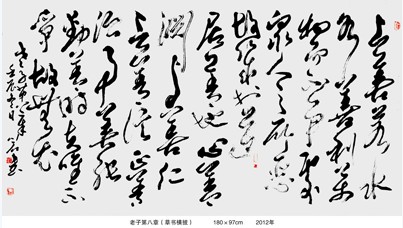 上善若水
水善利萬
物而不爭處
衆人之所惡
故幾於道
居善地心善
淵與善仁
言善信正善
治事善能
動善時夫唯不
爭故無尤
老子第八章
壬辰
老子第八章（草书横披） 180×97cm 2012年